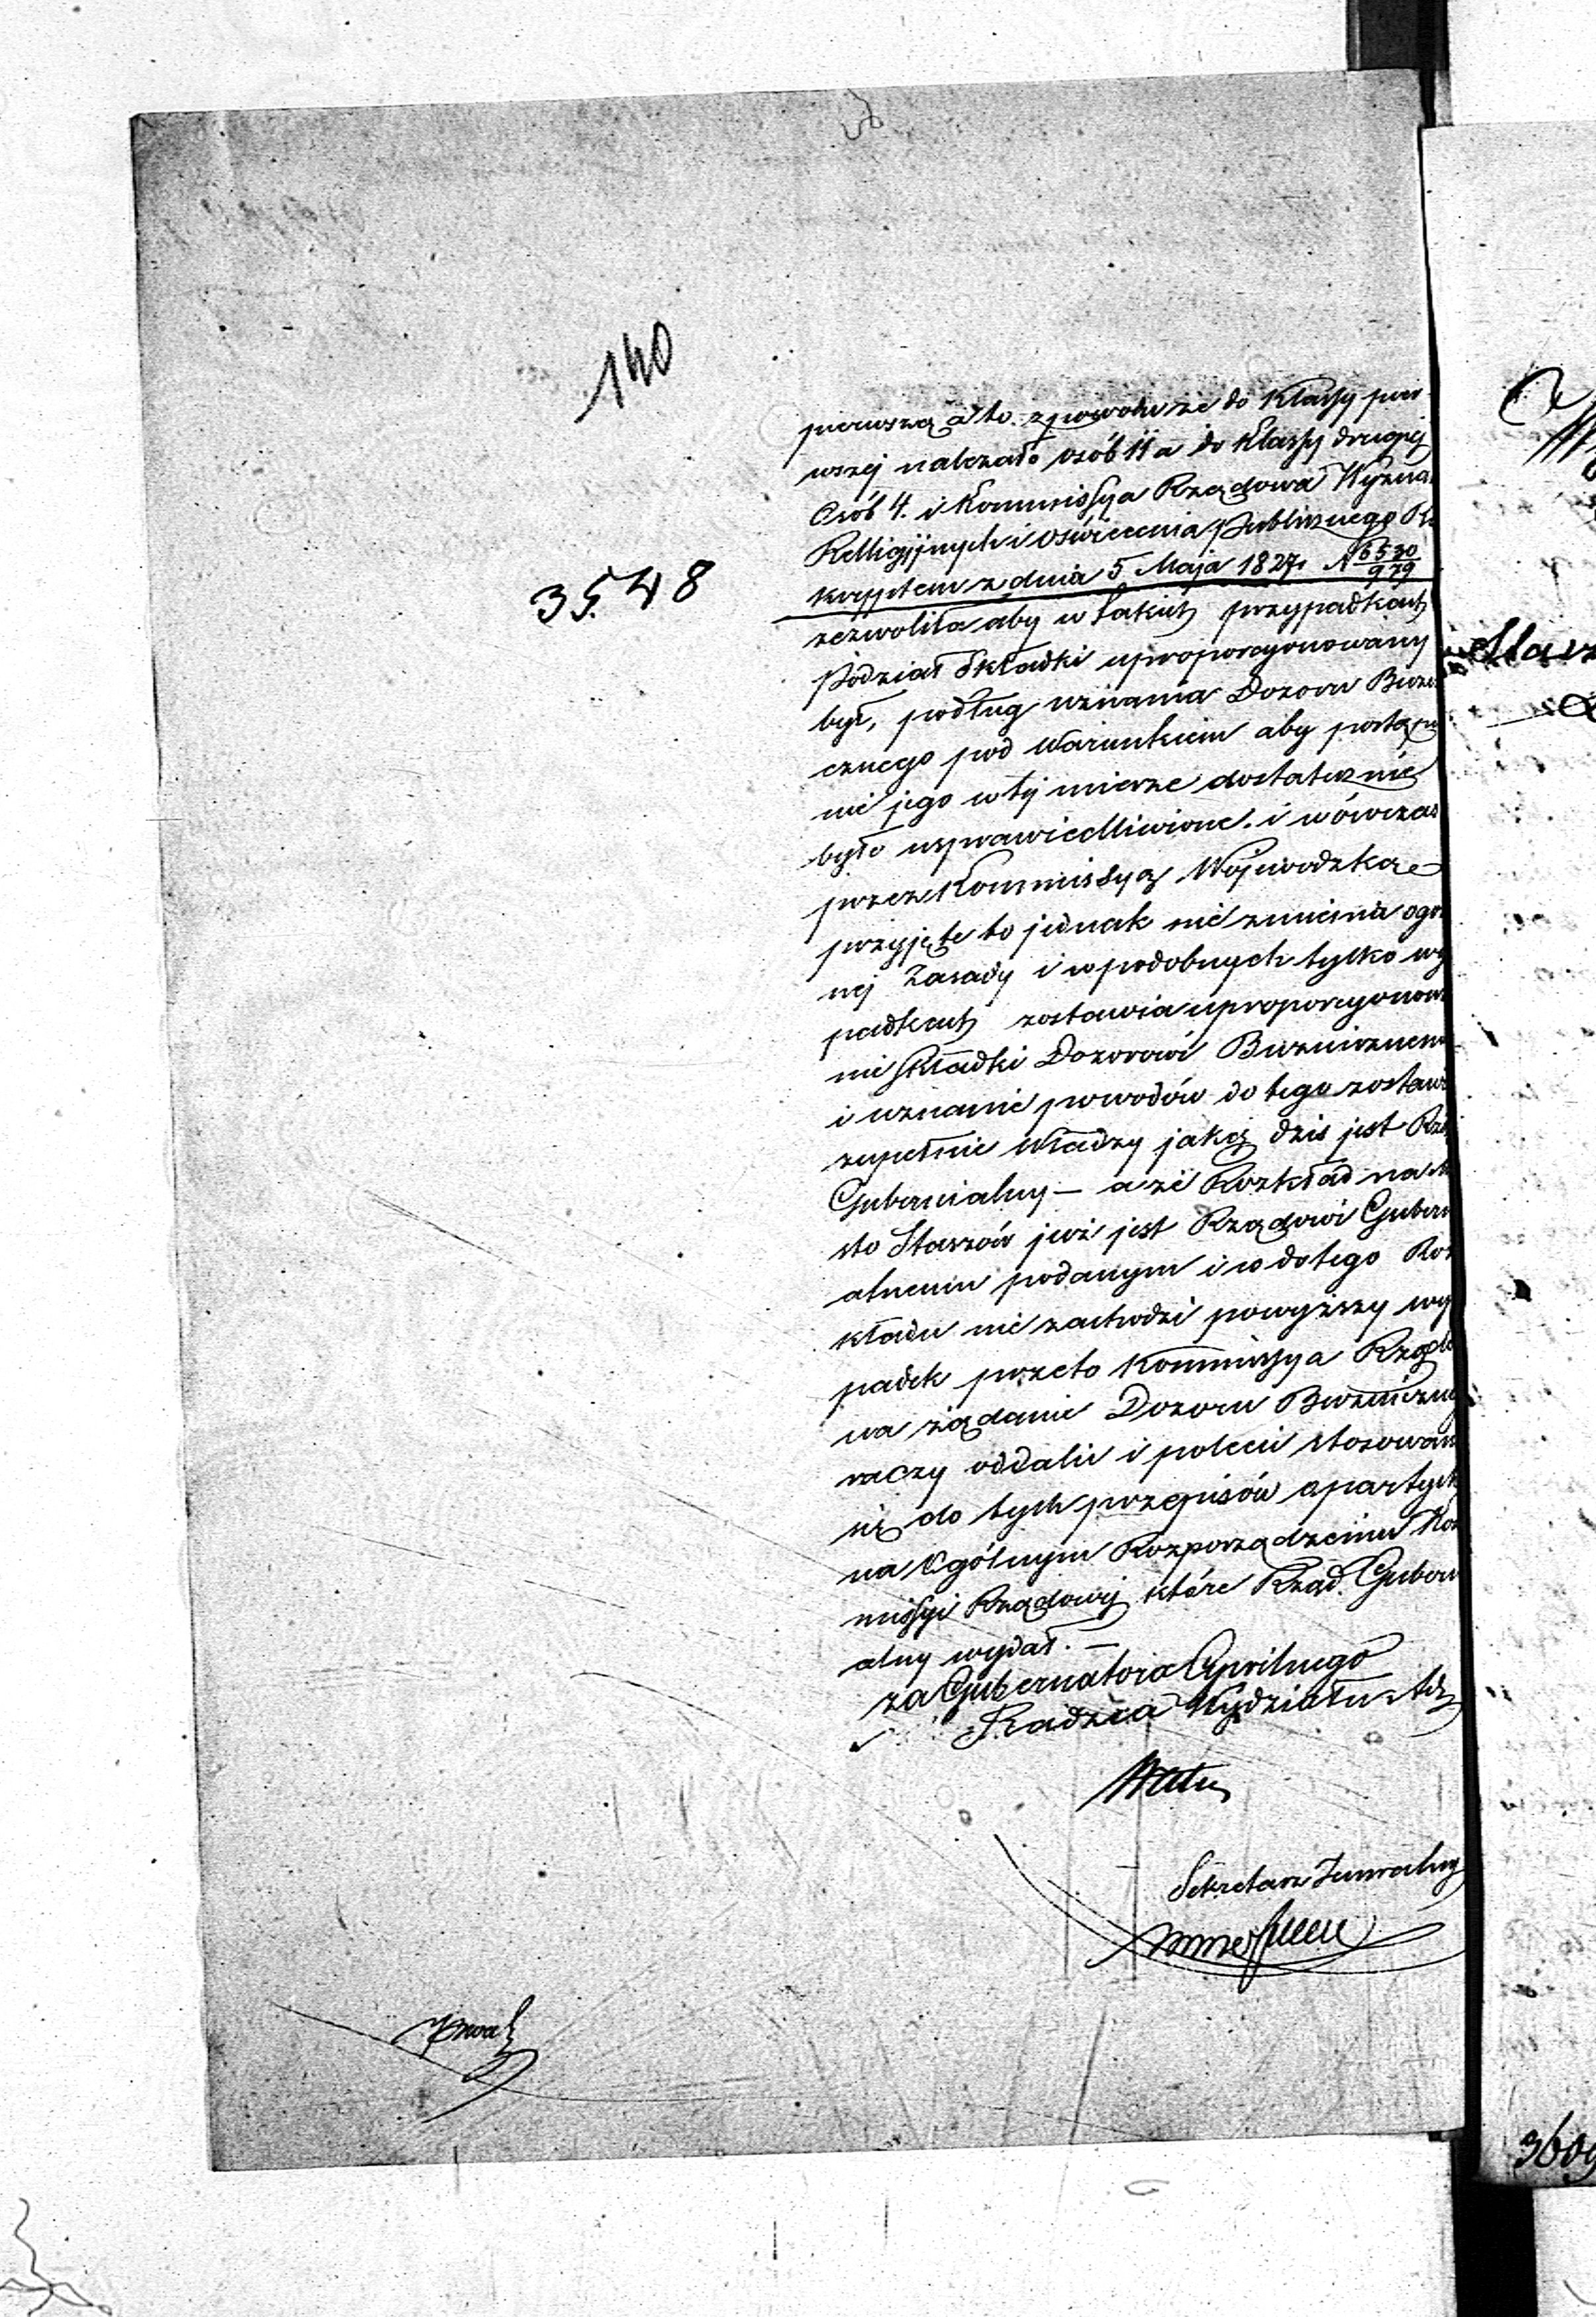 140
35.48
pierwszą a to. z powodu że do Klassy pier-
wszej należało osób 11 a do Klassy drugiej
Osób 4. i Kommissya Rządowa Wyzna
Relligijnych i Oświecenia Publicznego Re
kryptem z dnia 5 Maja 1827. N 6530/979
zezwoliła aby w takich przypadkach
Podział Składki uproporcyonowany
był, podług uznania Dozoru Bużni
cznego pod warunkiem aby postępowa
nie jego w tej mierze dostatecznie
było usprawiedliwione. i wówczas
przez Kommissyą Wojewodzką
przyjęte to jednak nie zmienia ogol
nej Zasady i w podobnych tylko wy
padkach zostawia uproporcyonowa
nie Składki Dozorowi Bużnicznemu
i uznanie powodów do tego zostawia
zupełnie Władzy jaką dziś jest Rząd
Gubernialny — a że Rozkład na Mia
sto Staszów już jest Rządowi Guberni
alnemu podanym i co do tego Roz
kładu nie zachodzi powyższy wy
padek przeto Kommissya Rządo
wa żądanie Dozoru Bużniczneg
raczy oddalić i polecić stosowan
się do tych przepisów opartych
na Ogólnym Rozporządzeniu Kom
missyi Rządowej które Rząd. Guberni
alny wydał. —
za Gubernatora Cywilnego
Radzca Wydziału Ad
Sekretarz Jeneralny
Staszó
3609